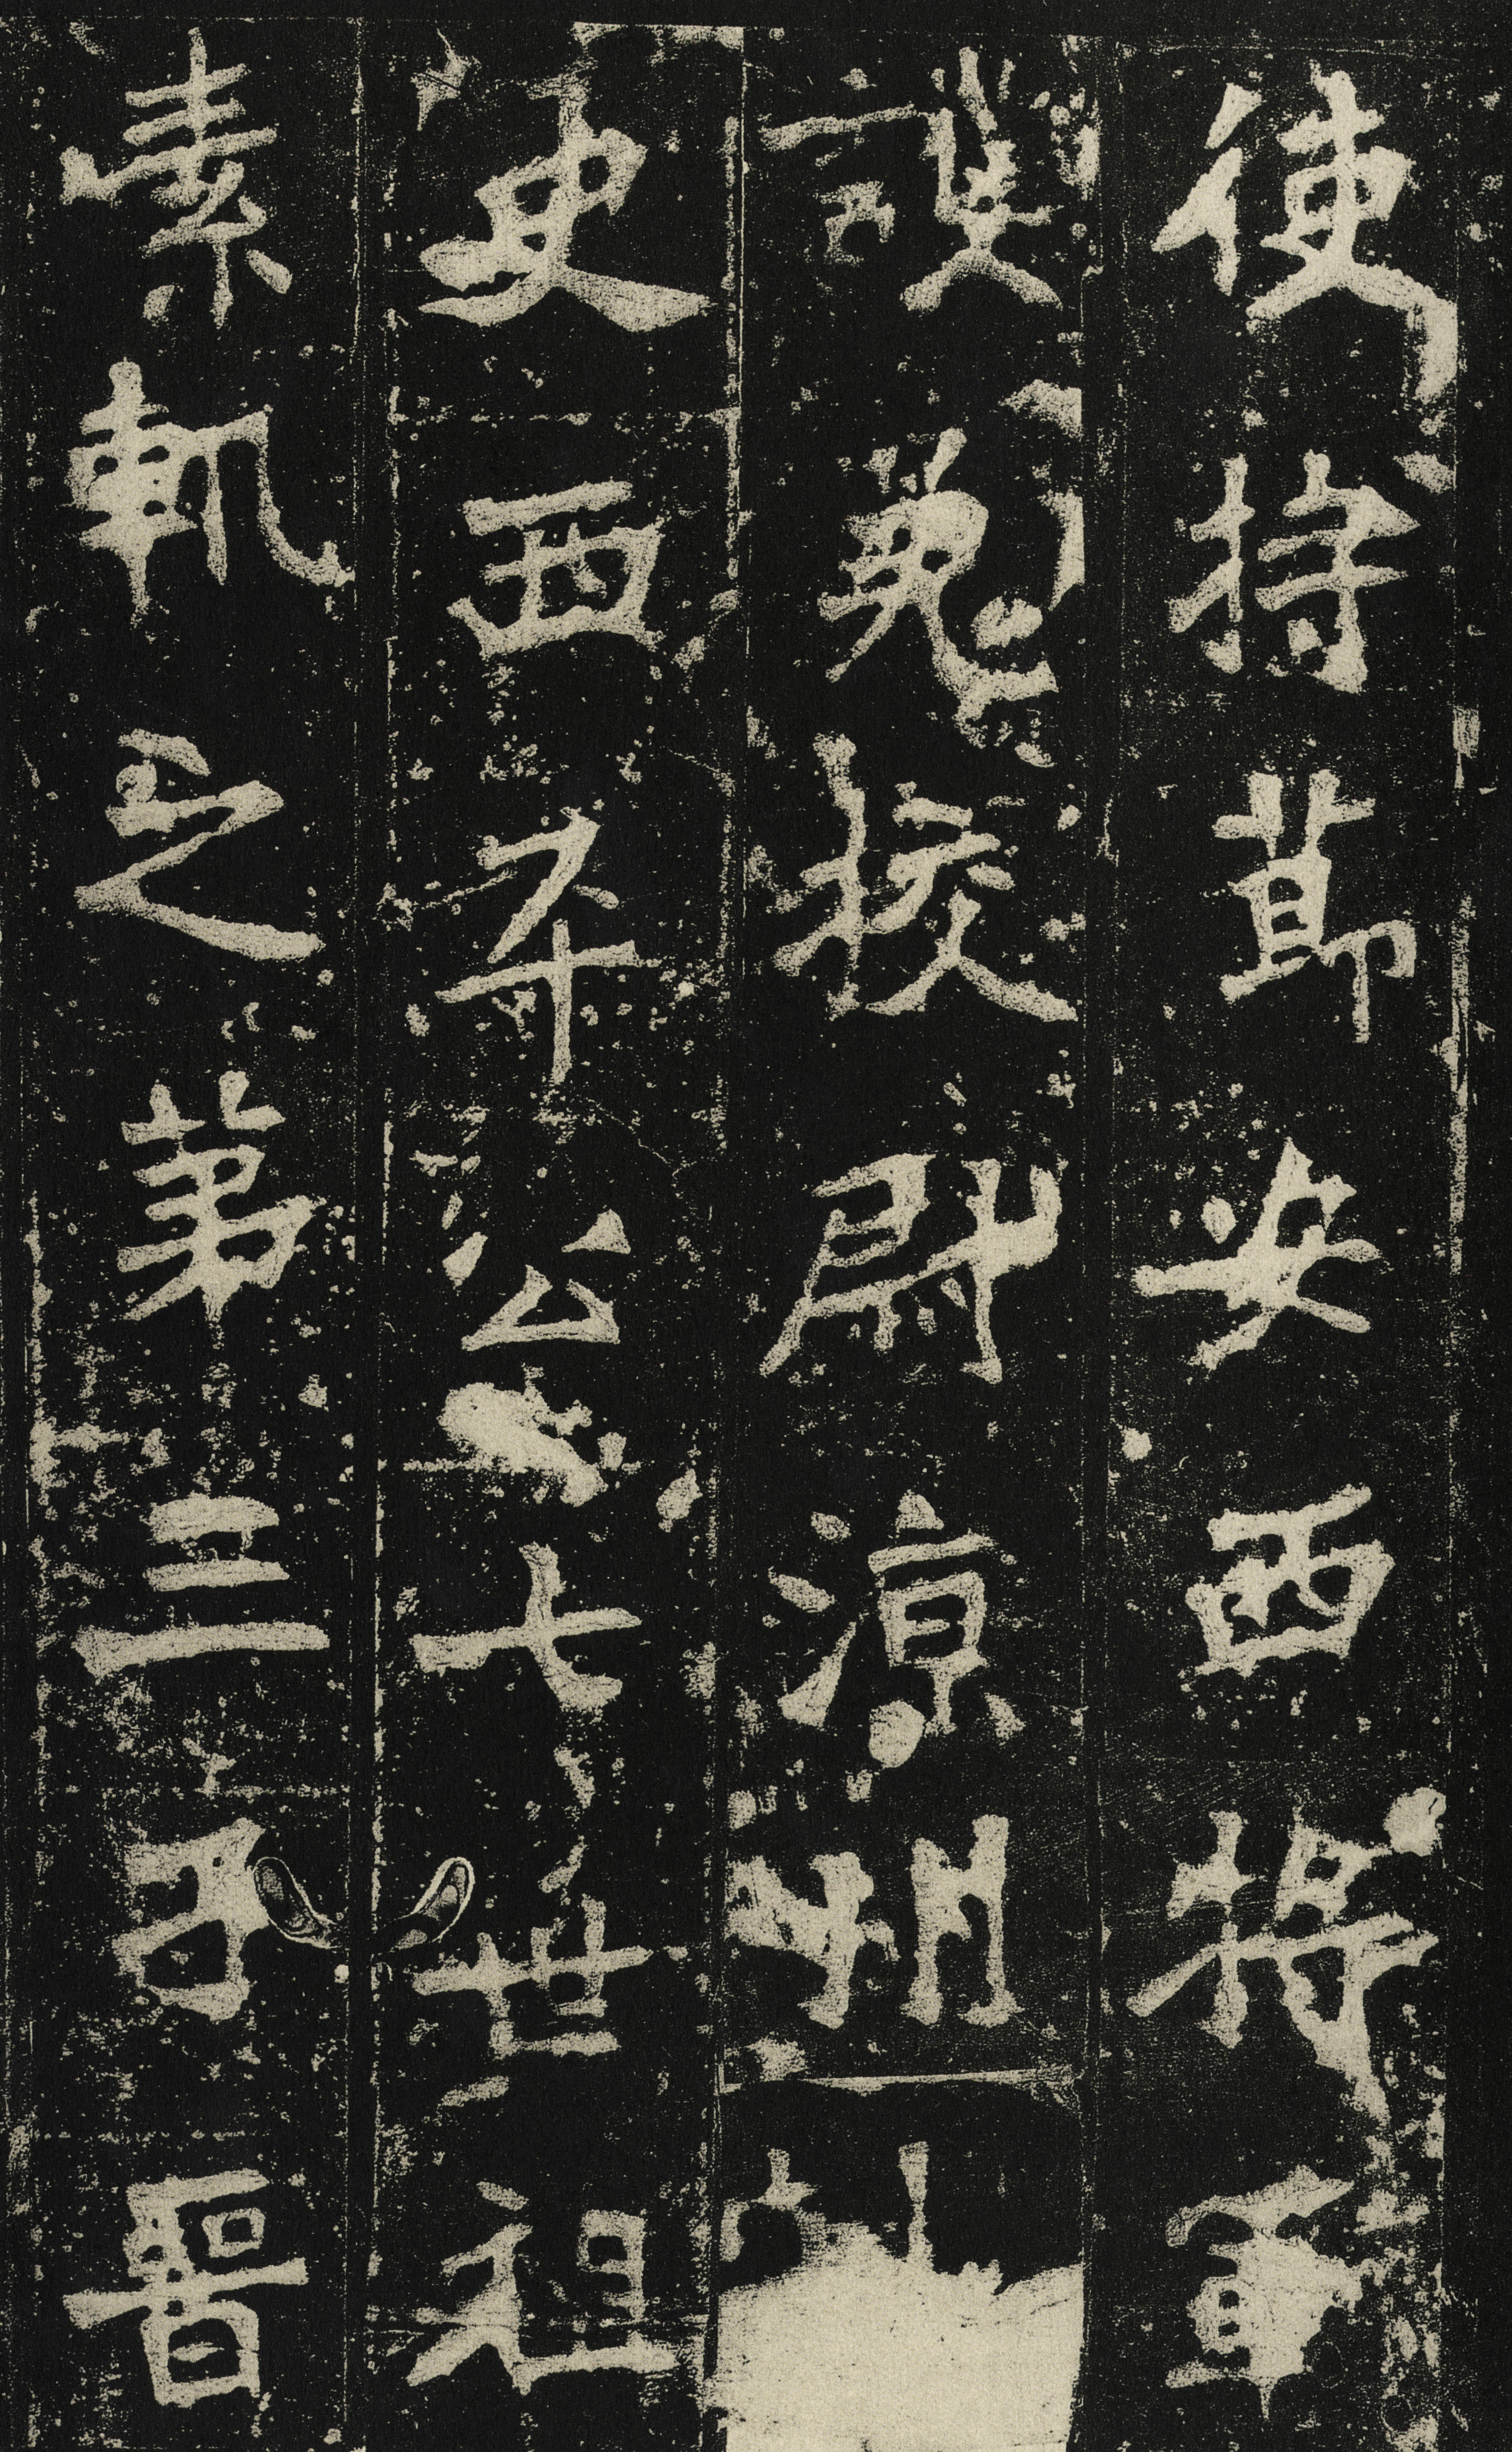 使持莭安西將軍
護羌校尉涼州刾
史西平公七世祖
素軌之苐三子晉